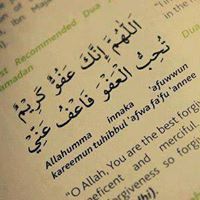 bn Majah,
Recommended Dua
Ramadan
Dua
اللَّهُمَّ إِنَّكَ عَفُوٌّ كَرِيمٌ
تُحِبُّ الْعَفْوَ فَاعْفُ عَنِّي
Allahumma innaka 'afuwwun
kareemun tuhibbul 'afwa fa'fu 'annee
"O Allah, You are the best forgi
eficent and merciful.
rgiveness so forgi